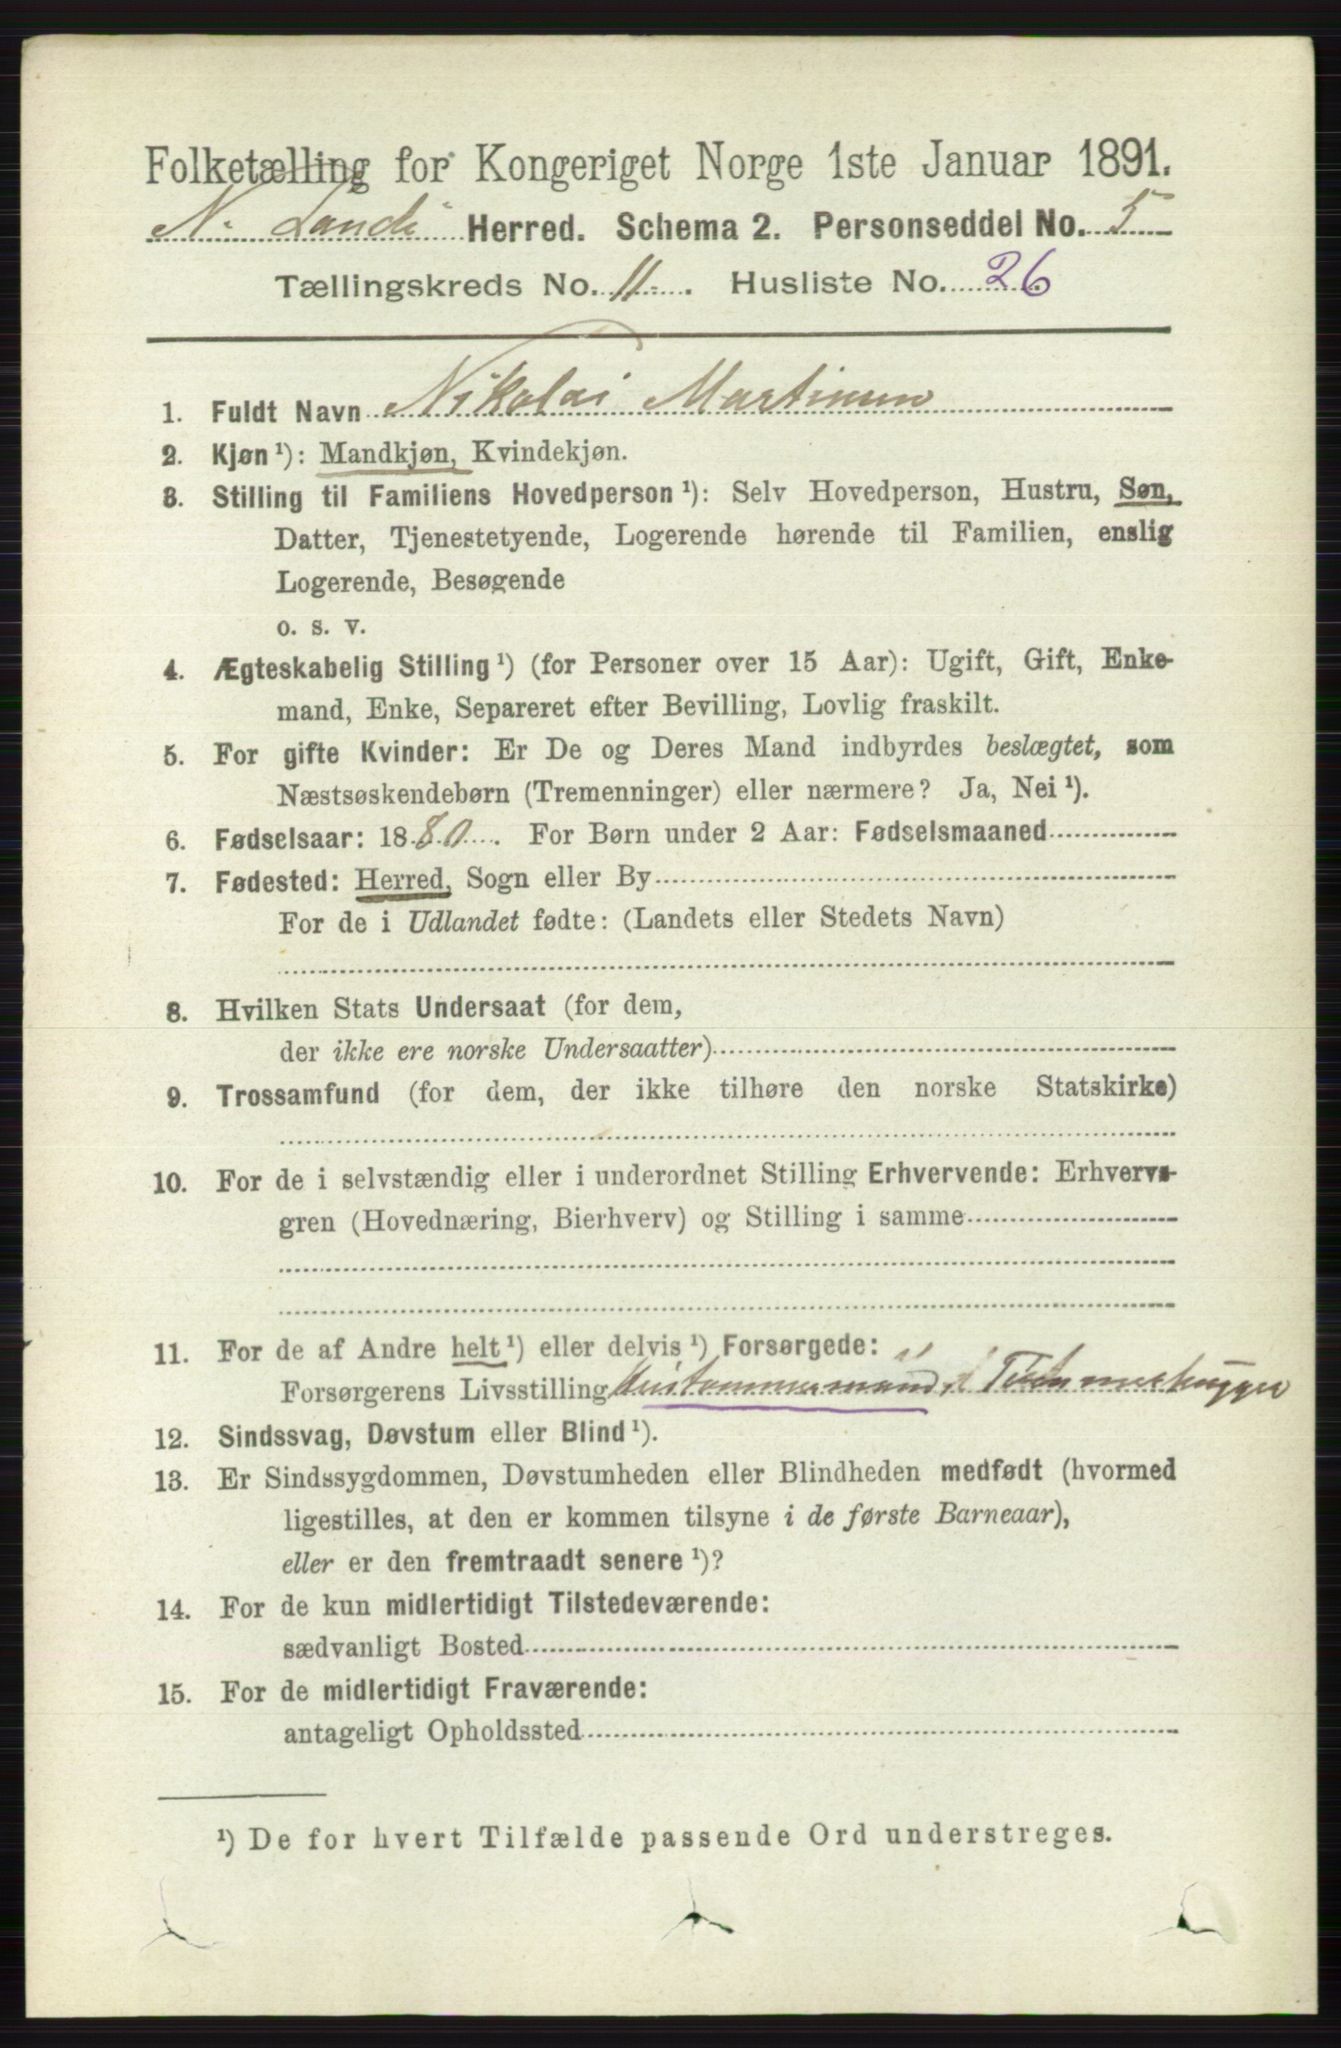 Folketælling for Kongeriget Norge 1ste Januar 1891.
N. Land Herred. Schema 2. Personseddel No. 5
Tællingskreds No. 11. Husliste No. 26
1. Fuldt Navn Nikolai Martinsen
2. Kjøn ¹): Mandkjøn, Kvindekjøn.
3. Stilling til Familiens Hovedperson ¹): Selv Hovedperson, Hustru, Søn,
Datter, Tjenestetyende, Logerende hørende til Familien, enslig
Logerende, Besøgende
o. s. v.
4. Ægteskabelig Stilling ¹) (for Personer over 15 Aar): Ugift, Gift, Enke-
mand, Enke, Separeret efter Bevilling, Lovlig fraskilt.
5. For gifte Kvinder: Er De og Deres Mand indbyrdes beslægtet, som
Næstsøskendebørn (Tremenninger) eller nærmere? Ja, Nei ¹).
6. Fødselsaar: 1880. For Børn under 2 Aar: Fødselsmaaned
7. Fødested: Herred, Sogn eller By
For de i Udlandet fødte: (Landets eller Stedets Navn)
8. Hvilken Stats Undersaat (for dem,
der ikke ere norske Undersaatter)
9. Trossamfund (for dem, der ikke tilhøre den norske Statskirke)
10. For de i selvstændig eller i underordnet Stilling Erhvervende: Erhvervs-
gren (Hovednæring, Bierhverv) og Stilling i samme
11. For de af Andre helt ¹) eller delvis ¹) Forsørgede:
Forsørgerens Livsstilling Hustømmermand Tømmerhugger
12. Sindssvag, Døvstum eller Blind ¹).
13. Er Sindssygdommen, Døvstumheden eller Blindheden medfødt (hvormed
ligestilles, at den er kommen tilsyne i de første Barneaar),
eller er den fremtraadt senere ¹)?
14. For de kun midlertidigt Tilstedeværende:
sædvanligt Bosted
15. For de midlertidigt Fraværende:
antageligt Opholdssted
¹) De for hvert Tilfælde passende Ord understreges.